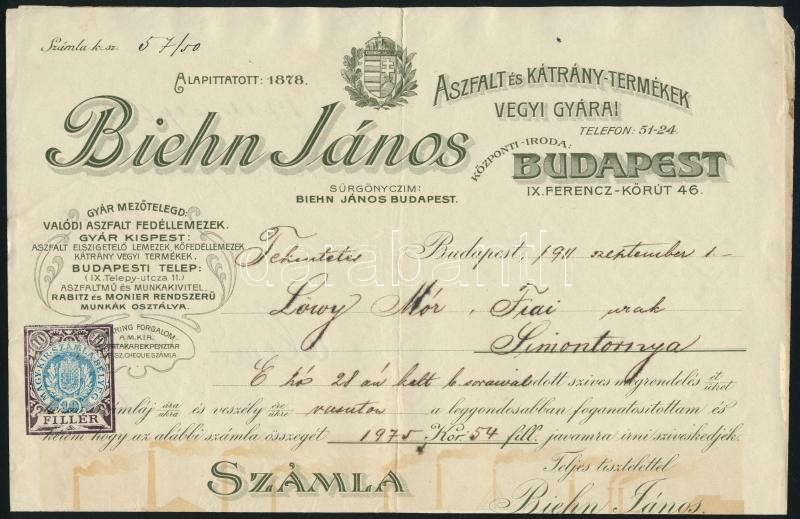 Számla k. sz. 57/50
ALAPITTATOTT: 1878.
Biehn János
ASZFALT és KÁTRÁNY-TERMÉKEK
VEGYI GYÁRAI
TELEFON: 51-24.
KÖZPONTI-IRODA:
BUDAPEST
IX. FERENCZ-KÖRÚT 46.
SÜRGÖNYCZIM:
BIEHN JÁNOS BUDAPEST.
GYÁR MEZŐTELEGD:
VALÓDI ASZFALT FEDÉLLEMEZEK.
GYÁR KISPEST:
ASZFALT ELSZIGETELŐ LEMEZEK, KŐFEDÉLLEMEZEK
KÁTRÁNY VEGYI TERMÉKEK.
BUDAPESTI TELEP:
(IX. Telepy-utcza 11.)
ASZFALTMŰ ÉS MUNKAKIVITEL,
RABITZ és MONIER RENDSZERŰ
MUNKÁK OSZTÁLYA.
RING FORGALOM
A M. KIR.
TAKAREKPENZTÁR
SZ. CHEQUESZÁMLA
10 10
MAGY. KIR. SZÁMLABÉLYEG
10
FILLÉR
Tekintetes Budapest, 1911 szeptember 1.
Löwy Mór, Fiai urak
Simontornya
E hó 28 án kelt b. soraival dott szives megrendelés ét üket
számláj ára ukra és veszély ére ükre vasuton a leggondosabban foganatositottam és
kérem hogy az alábbi számla összegét 1975 Kor. 54 fill. javamra irni sziveskedjék.
Teljes tisztelettel
SZÁMLA
Biehn János.
darabanth